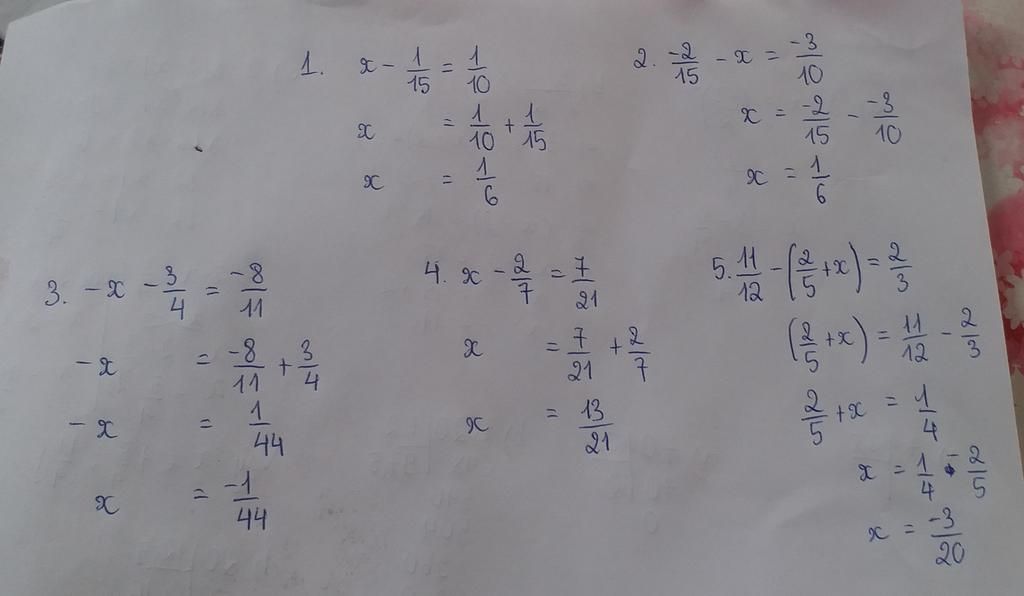 1. x - 1/15 = 1/10
x = 1/10 + 1/15
x = 1/6
2. -2/15 - x = -3/10
x = -2/15 - -3/10
x = 1/6
3. -x - 3/4 = -8/11
-x = -8/11 + 3/4
-x = 1/44
x = -1/44
4. x - 2/7 = 7/21
x = 7/21 + 2/7
x = 13/21
5. 11/12 - (2/5 + x) = 2/3
(2/5 + x) = 11/12 - 2/3
2/5 + x = 1/4
x = 1/4 - 2/5
x = -3/20